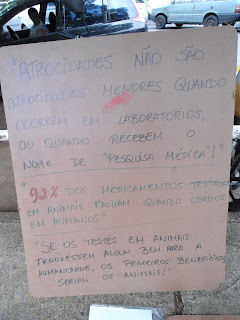 "ATROCIDADES NÃO SÃO
ATROCIDADES MENORES QUANDO
OCORREM EM LABORATÓRIOS,
OU QUANDO RECEBEM O
NOME DE "PESQUISA MÉDICA"!"
"92% DOS MEDICAMENTOS TESTADOS
EM ANIMAIS FALHAM QUANDO USADOS
EM HUMANOS"
"SE OS TESTES EM ANIMAIS
TROUXESSEM ALGUM BEM PARA A
HUMANIDADE, OS PRIMEIROS BENEFICIADOS
SERIAM OS ANIMAIS!"